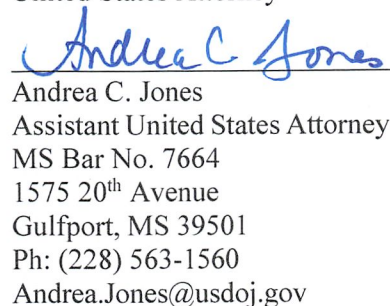 United States Attorney
Andrea C. Jones
Andrea C. Jones
Assistant United States Attorney
MS Bar No. 7664
1575 20th Avenue
Gulfport, MS 39501
Ph: (228) 563-1560
Andrea.Jones@usdoj.gov